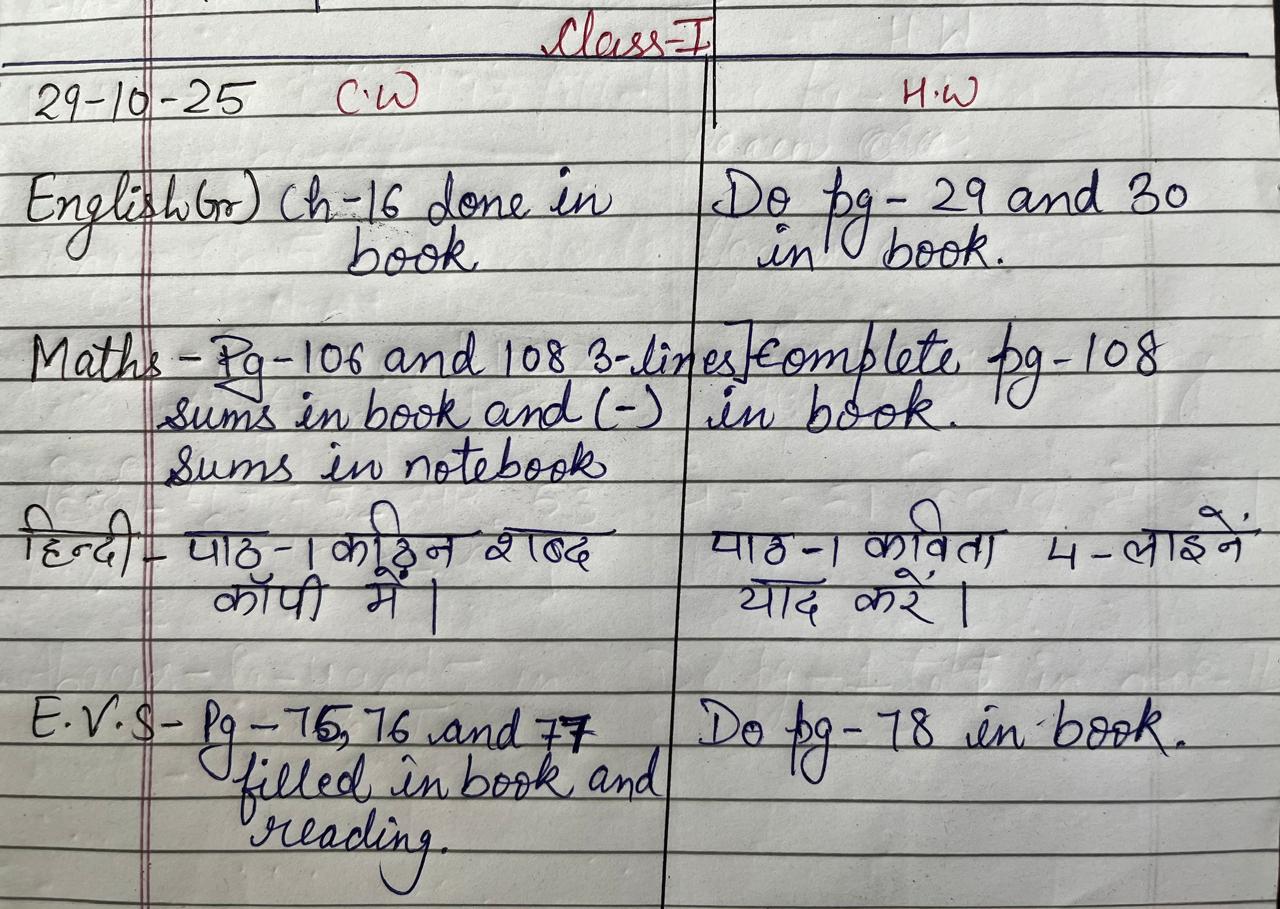 Class-I
29-10-25 C.W H.W
English(Gr) Ch-16 done in Do pg-29 and 30
book in book.
Maths - Pg-106 and 108 3-lines] Complete pg-108
sums in book and (-) in book.
sums in notebook
हिन्दी - पाठ-1 कठिन शब्द पाठ-1 कविता 4-लाइनें
कॉपी में। याद करें।
E.V.S - Pg-75, 76 and 77 Do pg-78 in book.
filled in book and
reading.